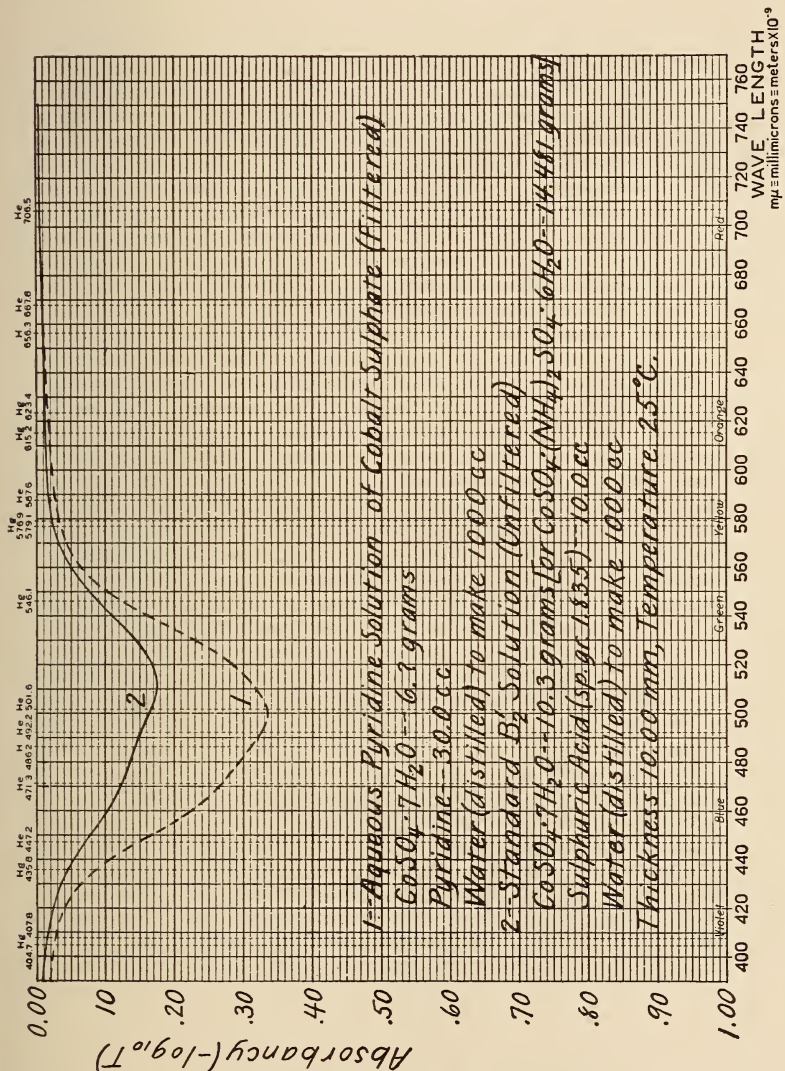 Hg
404.7 407.8
Hg
435.8
He
447.2
He
471.3
H
486.2
He
492.2
He
501.6
Hg
546.1
Hg
576.9
579.1
He
587.6
Hg
615.2 623.4
H
656.3
He
667.8
He
706.5
Absorbancy (-log₁₀T)
0.00
.10
.20
.30
.40
.50
.60
.70
.80
.90
1.00
2
1
1--Aqueous Pyridine Solution of Cobalt Sulphate (Filtered)
CoSO₄·7H₂O--6.? grams
Pyridine--30.0 cc
Water (distilled) to make 1000 cc
2--Standard B₂' Solution (Unfiltered)
CoSO₄·7H₂O--10.3 grams [or CoSO₄·(NH₄)₂SO₄·6H₂O--14.481 grams]
Sulphuric Acid (sp.gr. 1.835)--10.0 cc
Water (distilled) to make 1000 cc
Thickness 10.00 mm, Temperature 25°C.
Violet Blue Green Yellow Orange Red
400 420 440 460 480 500 520 540 560 580 600 620 640 660 680 700 720 740 760
WAVE LENGTH
mμ ≡ millimicrons ≡ meters X10⁻⁹